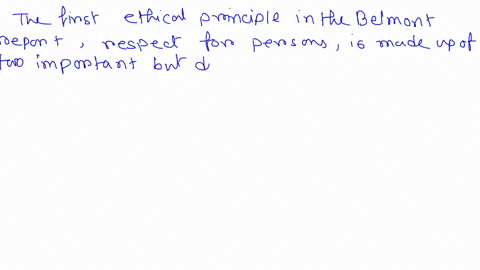 The first ethical principle in the Belmont
report, respect for persons, is made up of
two important but d